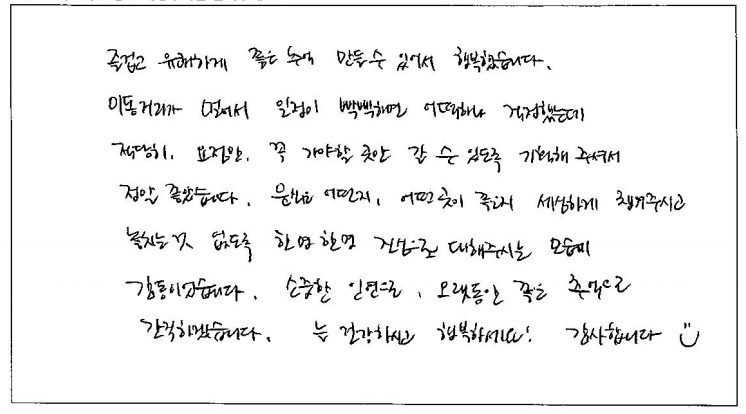 즐겁고 유쾌하게 좋은 추억 만들수 있어서 행복했습니다.
이동거리가 멀어서 일정이 빡빡하면 어떡하나 걱정했는데
적당히. 요점만. 꼭 가야할 곳만 갈 수 있도록 기획해 주셔서
정말 좋았습니다. 어떤지, 어떤곳이 좋은지 세심하게 챙겨주시고
놓치는것 없도록 한명한명 진심으로 대해주시는 모습에
감동이었습니다. 소중한 인연으로, 오랫동안 좋은 추억으로
간직하겠습니다. 늘 건강하시고 행복하세요! 감사합니다